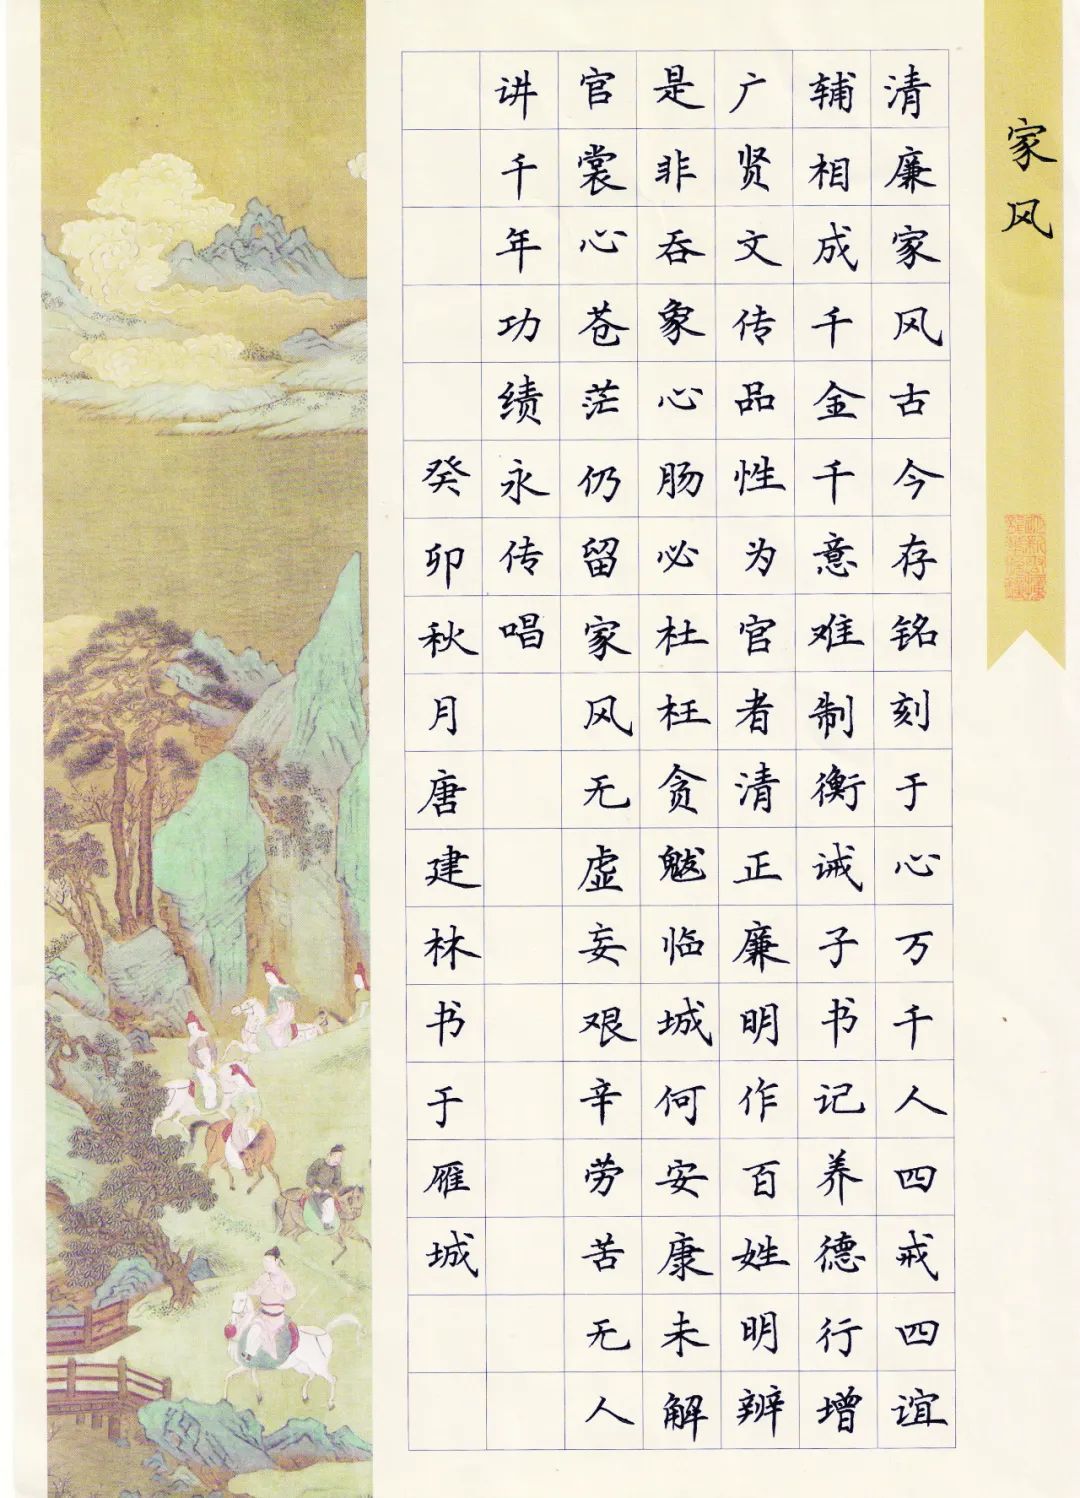 家风
清廉家风古今存铭刻于心万千人四戒四谊
辅相成千金千意难制衡诫子书记养德行增
广贤文传品性为官者清正廉明作百姓明辨
是非吞象心肠必杜枉贪魃临城何安康未解
官裳心苍茫仍留家风无虚妄艰辛劳苦无人
讲千年功绩永传唱
癸卯秋月唐建林书于雁城